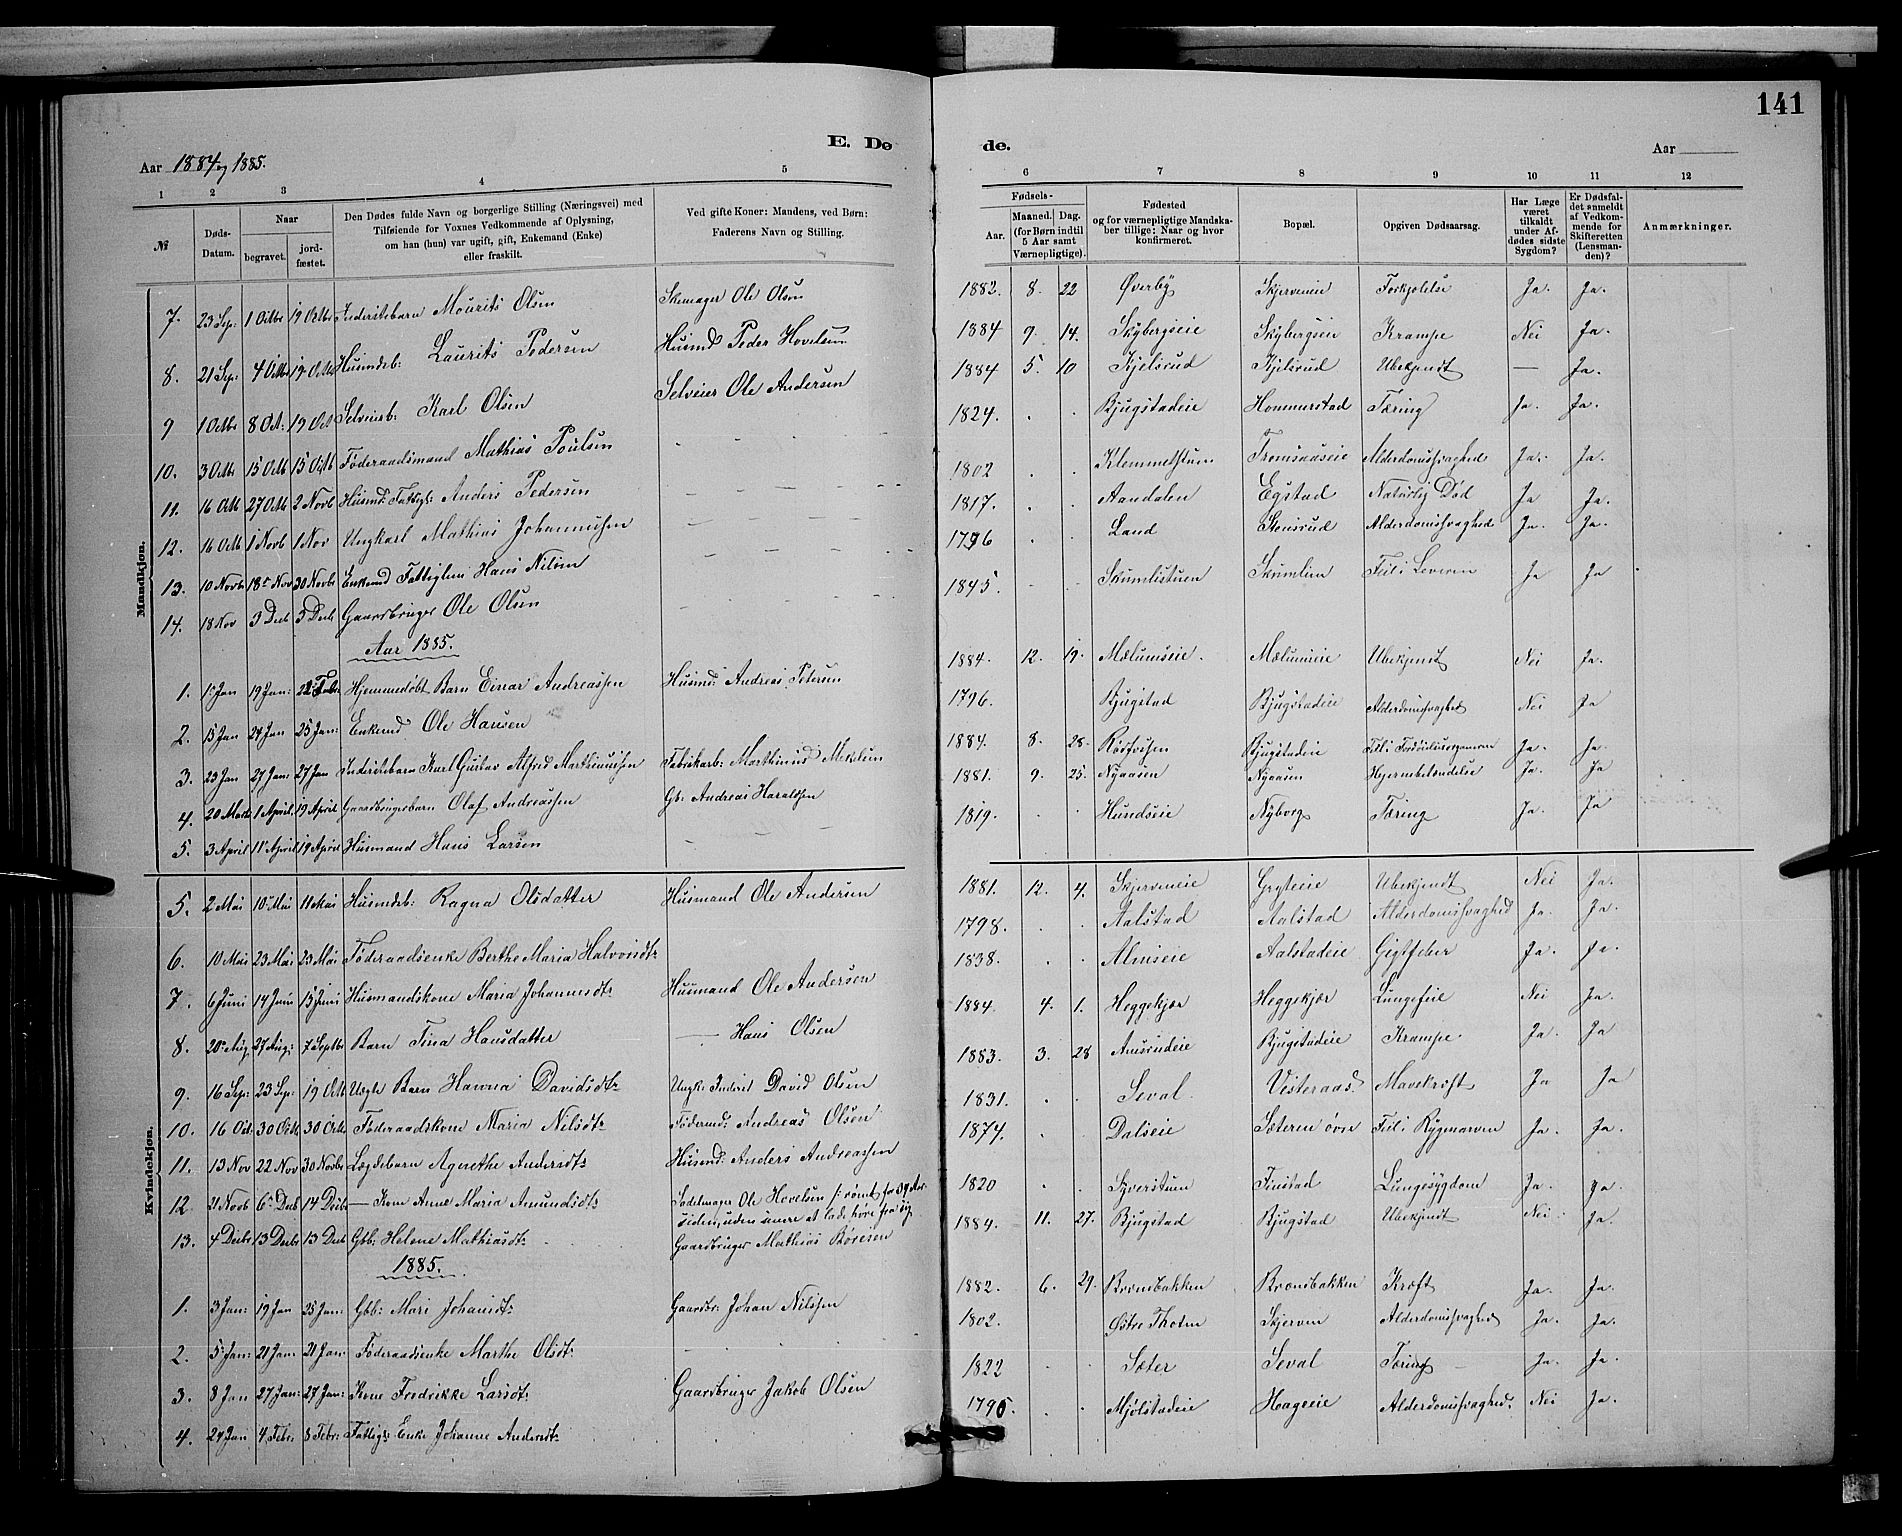 141
E. Dø de.
Aar 1884 og 1885. Aar
1 2 3 4 5 6 7 8 9 10 11 12
№ Døds-Datum. Naar begravet. jordfæstet. Den Dødes fulde Navn og borgerlige Stilling (Næringsvei) med Tilføiende for Voxnes Vedkommende af Oplysning, om han (hun) var ugift, gift, Enkemand (Enke) eller fraskilt. Ved gifte Koner: Mandens, ved Børn: Faderens Navn og Stilling. Fødsels- Aar. Maaned. Dag. (for Børn indtil 5 Aar samt Værnepligtige). Fødested og for værnepligtige Mandskaber tillige: Naar og hvor konfirmeret. Bopæl. Opgiven Dødsaarsag. Har Læge været tilkaldt under Afdødes sidste Sygdom? Er Dødsfaldet anmeldt af Vedkommende for Skifteretten (Lensmanden)? Anmærkninger.
Mandkjøn.
7. 23 Sep: 1 Octbr 19 Octbr Inderstebarn Mourits Olsen Skomager Ole Olsen 1882. 8. 22 Øverby Skjerveneie Forkjølelse Ja. Ja.
8. 21 Sep: 4 Octbr 19 Octbr Husmdsb: Laurits Pedersen Husmd Peder Hovelsen 1884 9. 14. Skybergseie Skybergseie Krampe Nei Ja.
9 1 Octbr 8 Oct: 19 Oct Selveierb: Karl Olsen Selveier Ole Andersen 1884 5. 10 Kjelsrud Kjelsrud Ubekjendt — Ja.
10. 3 Octb 15 Octb 15 Octb Føderaadsmand Mathias Poulsen 1824. Bjugstadeie Hommerstad Tæring Ja. Ja.
11. 16 Octb 27 Octb 2 Novb Husmd: Fattigl: Anders Pedersen 1802 Klemmetstuen Alderdomssvaghed Ja. Ja.
12. 16 Octb 1 Novb 1 Nov Ungkarl Mathias Johannessen 1817. Aandalen Egstad Naturlig Død Ja Ja.
13. 10 Novbr 18 Nov 30 Novbr Enkemd Fattiglem Hans Nilsen 1796 Land Stensrud Alderdomssvaghed Ja. Ja.
14. 18 Nov 3 Decb 3 Decb Gaardbruger Ole Olsen 1845. Skumlistuen Skumlien Feil i Leveren Ja Ja
Aar 1885.
1. 1 Jan 19 Jan: Febr: Hjemmedøbt Barn Einar Andreassen Husmd: Andreas Petersen 1884. 12. 19. Mælumseie. Mælumseie Ubekjendt Nei Ja.
2. 15 Jan 24 Jan 25 Jan: Enkemd Ole Hansen 1796. Bjugstad Bjugstadeie Alderdomssvaghed Nei Ja
3. 23 Jan 27 Jan: 27 Jan Inderstebarn Karl Gustav Alfred Marthinussen Fabrikarb: Marthinus 1884. 8. 28. Bjugstadeie Feil i Fordøielsesorganerne Ja. Ja.
4. 20 Marts 1 April 19 April Gaardbrugerbarn Olaf Andreassen Gb: Andreas Haraldsen 1881. 9. 25. Nyaasen Nyaasen Hjernebetændelse Ja. Ja
5. 3 April 11 April 19 April Husmand Hans Larsen 1819. Hundseie Nyborg Tæring Ja. Ja
Kvindekjøn.
5. 2 Mai 10 Mai 11 Mai Husmdsb: Ragna Olsdatter Husmand Ole Andersen 1881. 12. 4. Skjerveneie Gryteeie Ubekjendt Nei Ja.
6. 10 Mai 23 Mai 23 Mai Føderaadsenke Berthe Maria Halvorsdt: 1798. Aalstad Aalstad Alderdomssvaghed Ja. Ja.
7. 6 Juni 14 Juni 15 Juni Husmandskone Maria Johannesdt: Husmand Ole Andersen 1838. Almseie Aalstadeie Gigtfeber Ja. Ja.
8. 20 Aug 27 Aug: 7 Septbr Barn Tina Hansdatter — Hans Olsen 1884. 4. 1. Heggekjær Heggekjær Lungefeil Nei Ja.
9. 16 Sep: 23 Sep: 19 Octb Uægte Barn Hanna Davidsdt: Ungk: Inderst David Olsen 1883. 3. 28 Amsrudeie Bjugstadeie Krampe Ja. Ja
10. 16 Oct. 30 Octb 30 Octb Føderaadskone Maria Nilsdt: Fødermd: Andreas Olsen 1831. Seval. Vesteraas. Mavekræft Ja Ja
11. 13 Nov 22 Nov 30 Novbr Lægdebarn Agnethe Andersdt: Husmd: Anders Andreassen 1874. Dalseie Sæteren øvre Feil i Rygmarven Ja. Ja.
12 21 Novb 6 Decb 14 Decbr — Kone Anne Maria Amundsdt: Sadelmager Ole Hovelsen /: rømt for 39 Aar siden, uden senere at lade høre fra sig 1820 Syverstuen Finstad Lungesygdom Ja. Ja.
13. 4 Decbr 13 Decbr 13 Decb Gbb: Helene Mathiasdt: Gaardbruger Mathias Børesen 1884. 11. 27. Bjugstad Bjugstad Ubekjendt Nei Ja.
1885.
1. 3 Jan: 19 Jan 25 Jan: Gbb: Mari Johansdt: Gaardbr: Johan Nilssen 1882. 6. 29. Brænsbakken Brænsbakken Kræft Ja. Ja.
2. 5 Jan: 21 Jan: 21 Jan: Føderaadsenke Marthe Olsdt: 1802. Østre Thoten Skjerven Alderdomssvaghed Ja. Ja.
3. 8 Jan 27 Jan: 27 Jan: Kone Fredrikke Larsdt: Gaardbruger Jakob Olsen 1822 Sæter Seval Tæring Ja. Ja.
4. 24 Jan 4 Febr: 8 Febr: Fattigl: Enke Johanne Andersdt: 1795. Mjølstadeie Hageeie Alderdomssvaghed. Nei Ja.